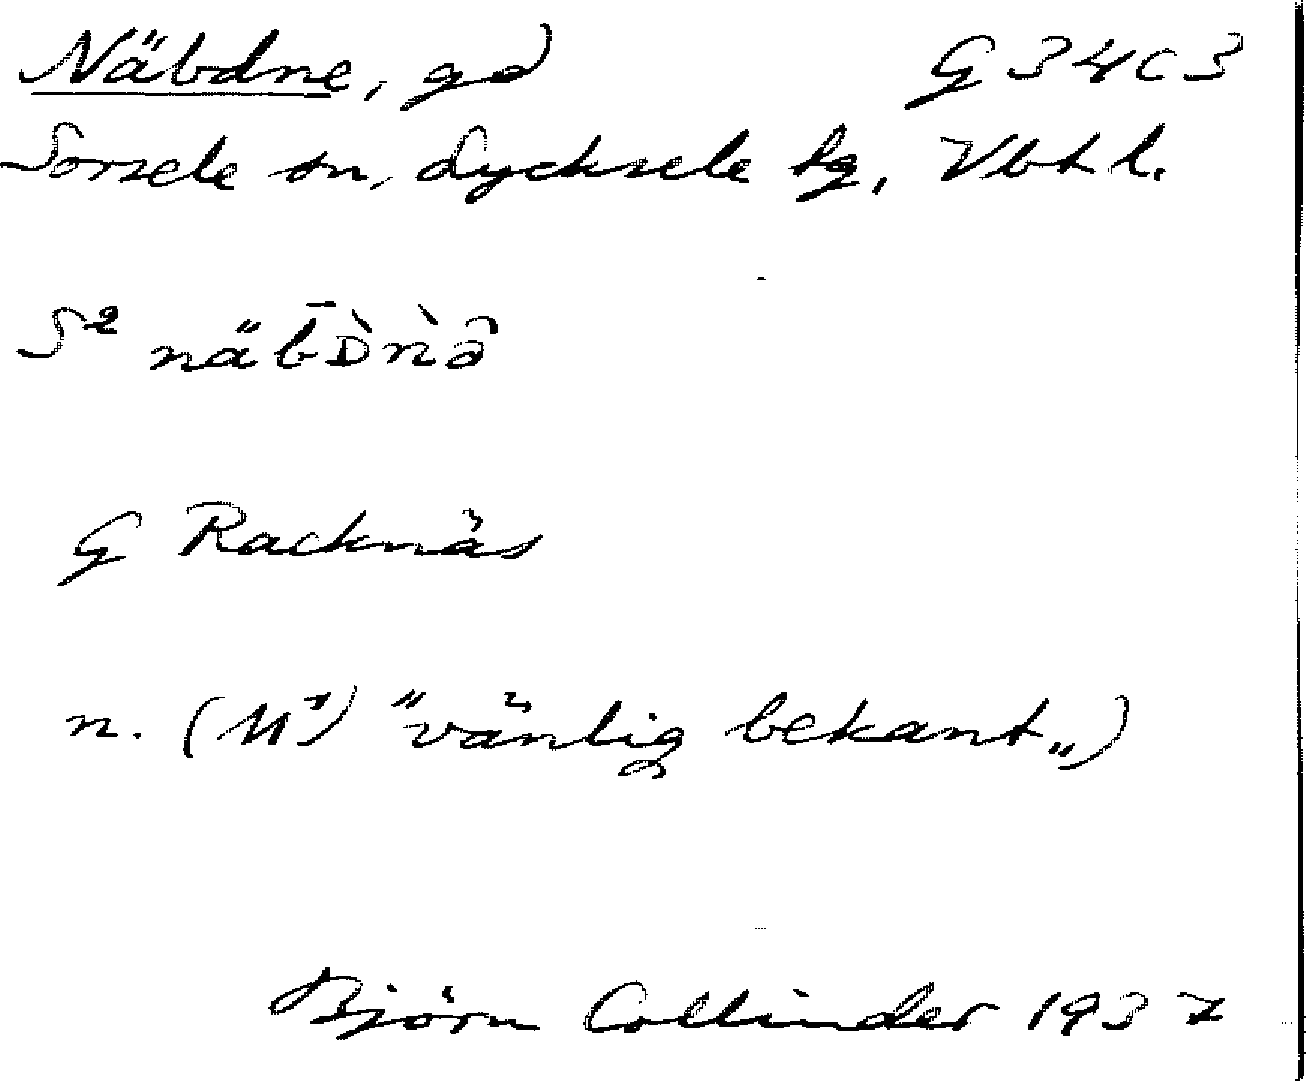 Näbdne, gd G 34 C 3
Sorsele sn, Lycksele lg, Vbt l.
S² näb̄ᴅ̀ǹə̂
G Racknäs
n. (M¹) "vänlig bekant„)
Björn Collinder 1937